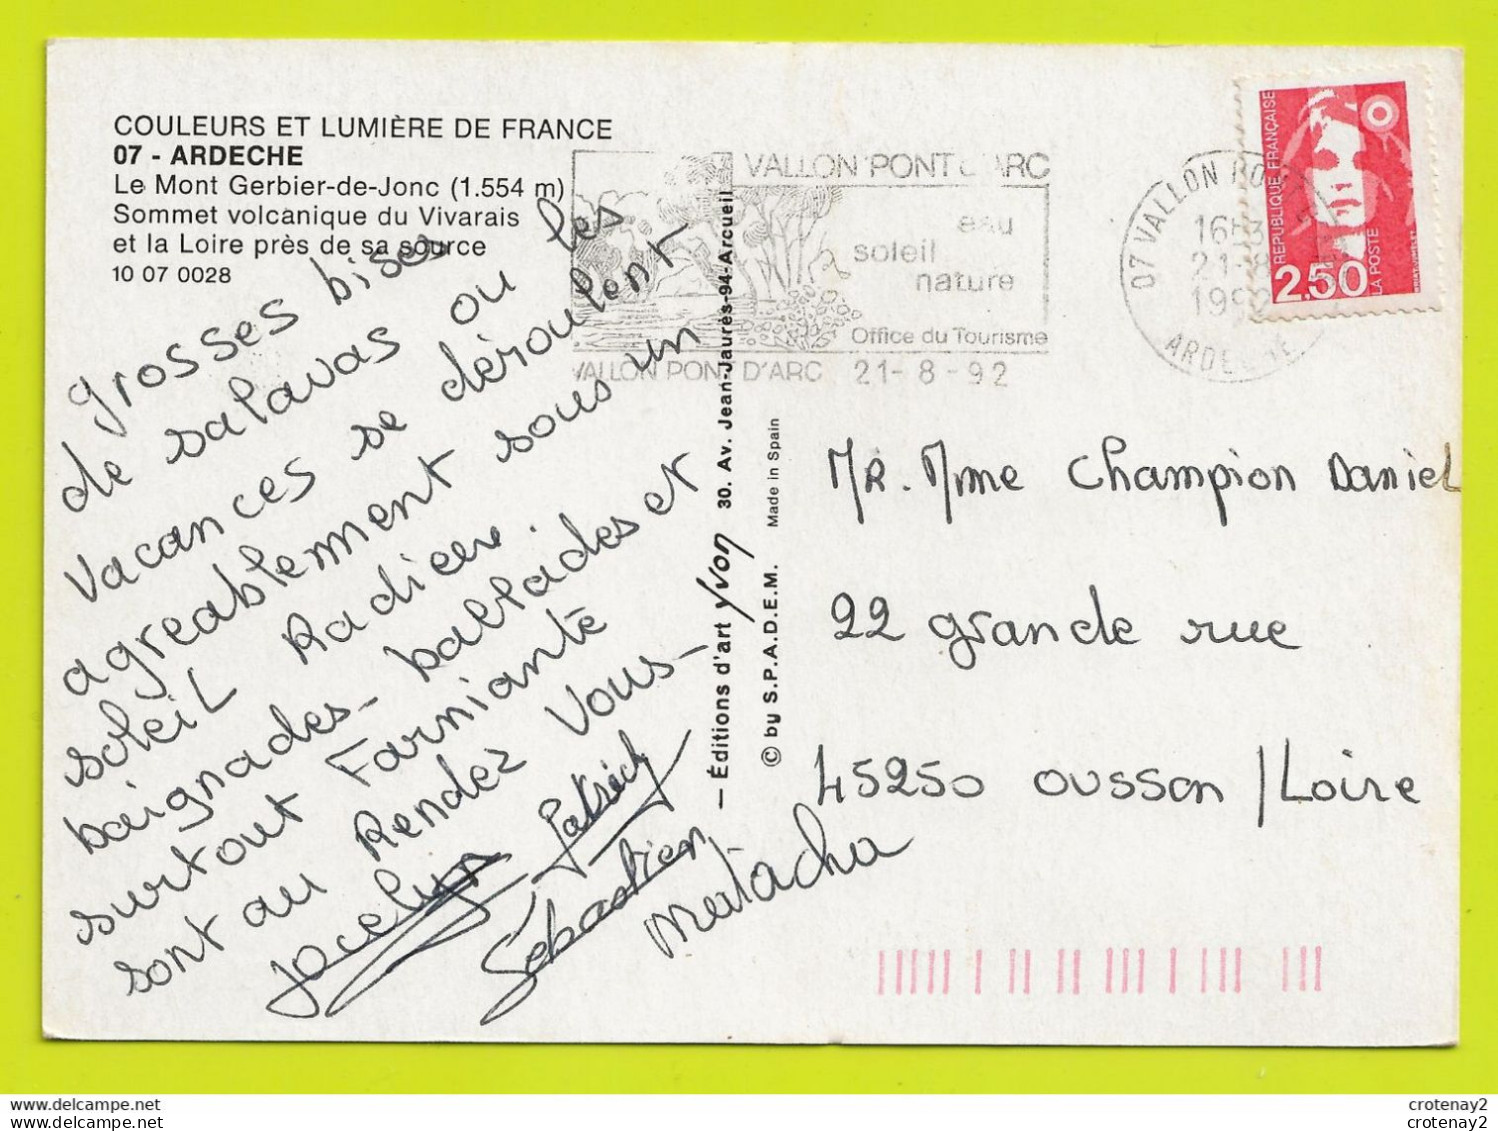 COULEURS ET LUMIÈRE DE FRANCE
07 - ARDECHE
Le Mont Gerbier-de-Jonc (1.554 m)
Sommet volcanique du Vivarais
et la Loire près de sa source
10 07 0028
grosses bises
de salavas ou les
vacances se déroulent
agréablement sous un
soleil Radieux
baignades - ballades et
surtout Farniante
sont au Rendez Vous -
Jocelyne Patrick
Sébastien
Natacha
VALLON PONT D'ARC
eau
soleil
nature
Office du Tourisme
VALLON PONT D'ARC 21-8-92
07 VALLON PONT
16H
21-8
1992
ARDECHE
REPUBLIQUE FRANÇAISE
2.50
LA POSTE
— Éditions d'art yvon 30. Av. Jean-Jaurès-94-Arcueil
© by S.P.A.D.E.M. Made in Spain
MR. Mme Champion Daniel
22 grande rue
45250 ousson /Loire
crotenay2
crotenay2
crotenay2
crotenay2